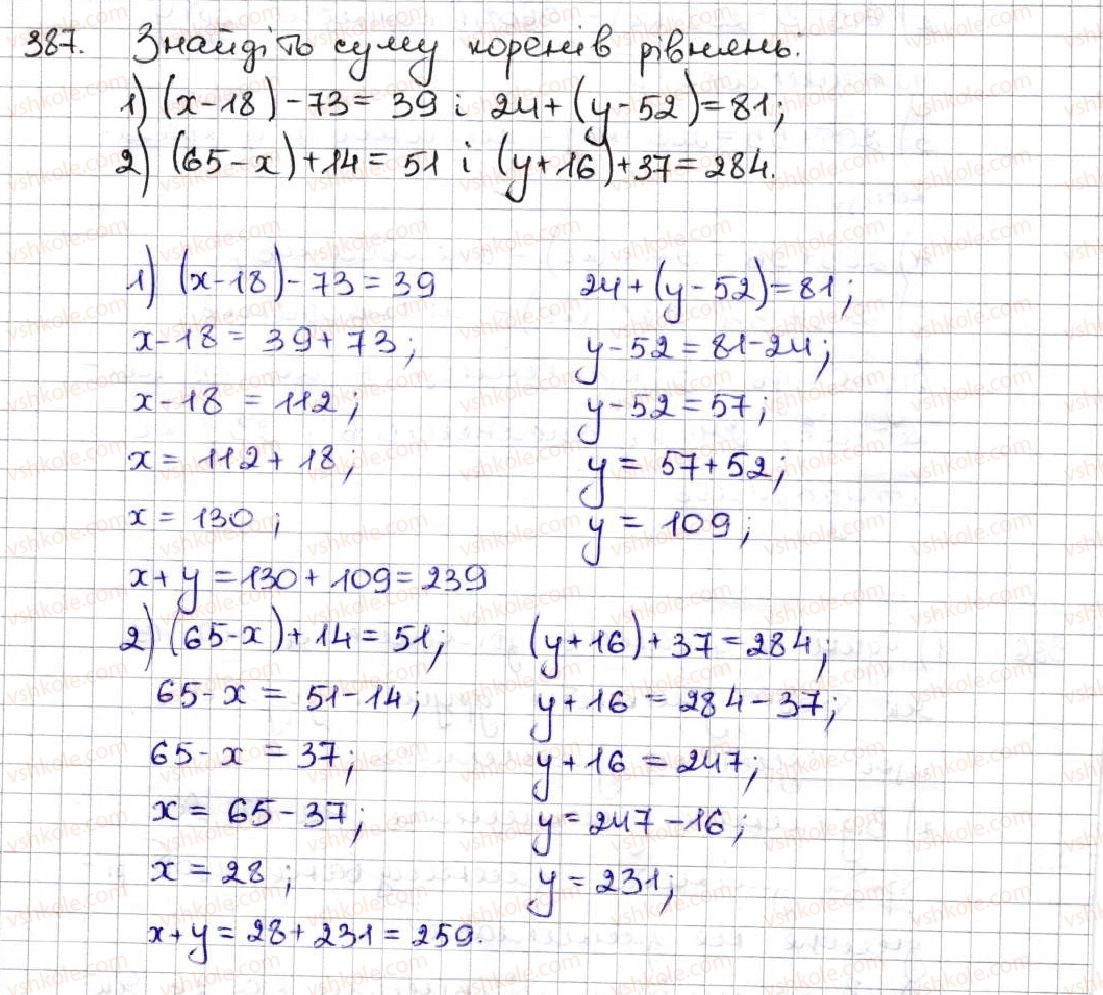 387. Знайдіть суму коренів рівнянь:
1) (x-18)-73=39 і 24+(y-52)=81;
2) (65-x)+14=51 і (y+16)+37=284.
1) (x-18)-73=39 24+(y-52)=81;
x-18=39+73; y-52=81-24;
x-18=112; y-52=57;
x=112+18; y=57+52;
x=130; y=109;
x+y=130+109=239
2) (65-x)+14=51; (y+16)+37=284;
65-x=51-14; y+16=284-37;
65-x=37; y+16=247;
x=65-37; y=247-16;
x=28; y=231;
x+y=28+231=259.